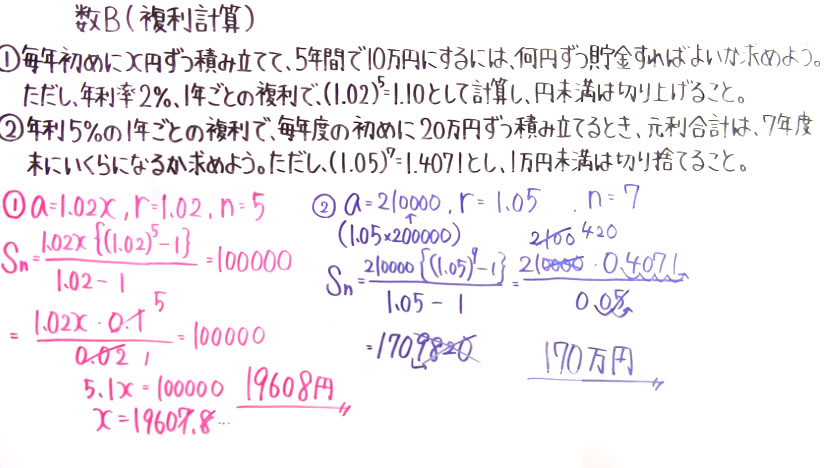 数B(複利計算)
①毎年初めにx円ずつ積み立てて、5年間で10万円にするには、何円ずつ貯金すればよいか求めよう。
ただし、年利率2%、1年ごとの複利で、(1.02)⁵=1.10として計算し、円未満は切り上げること。
②年利5%の1年ごとの複利で、毎年度の初めに20万円ずつ積み立てるとき、元利合計は、7年度
末にいくらになるか求めよう。ただし、(1.05)⁷=1.4071とし、1万円未満は切り捨てること。
①a=1.02x, r=1.02, n=5
Sn=1.02x{(1.02)⁵-1}/1.02-1=100000
=1.02x・0.1/0.02=100000
5
1
5.1x=100000
x=19607.8…
19608円
②a=210000, r=1.05, n=7
(1.05×200000)
Sn=210000{(1.05)⁷-1}/1.05-1=210000・0.4071/0.05
2100 420
=1709820
170万円